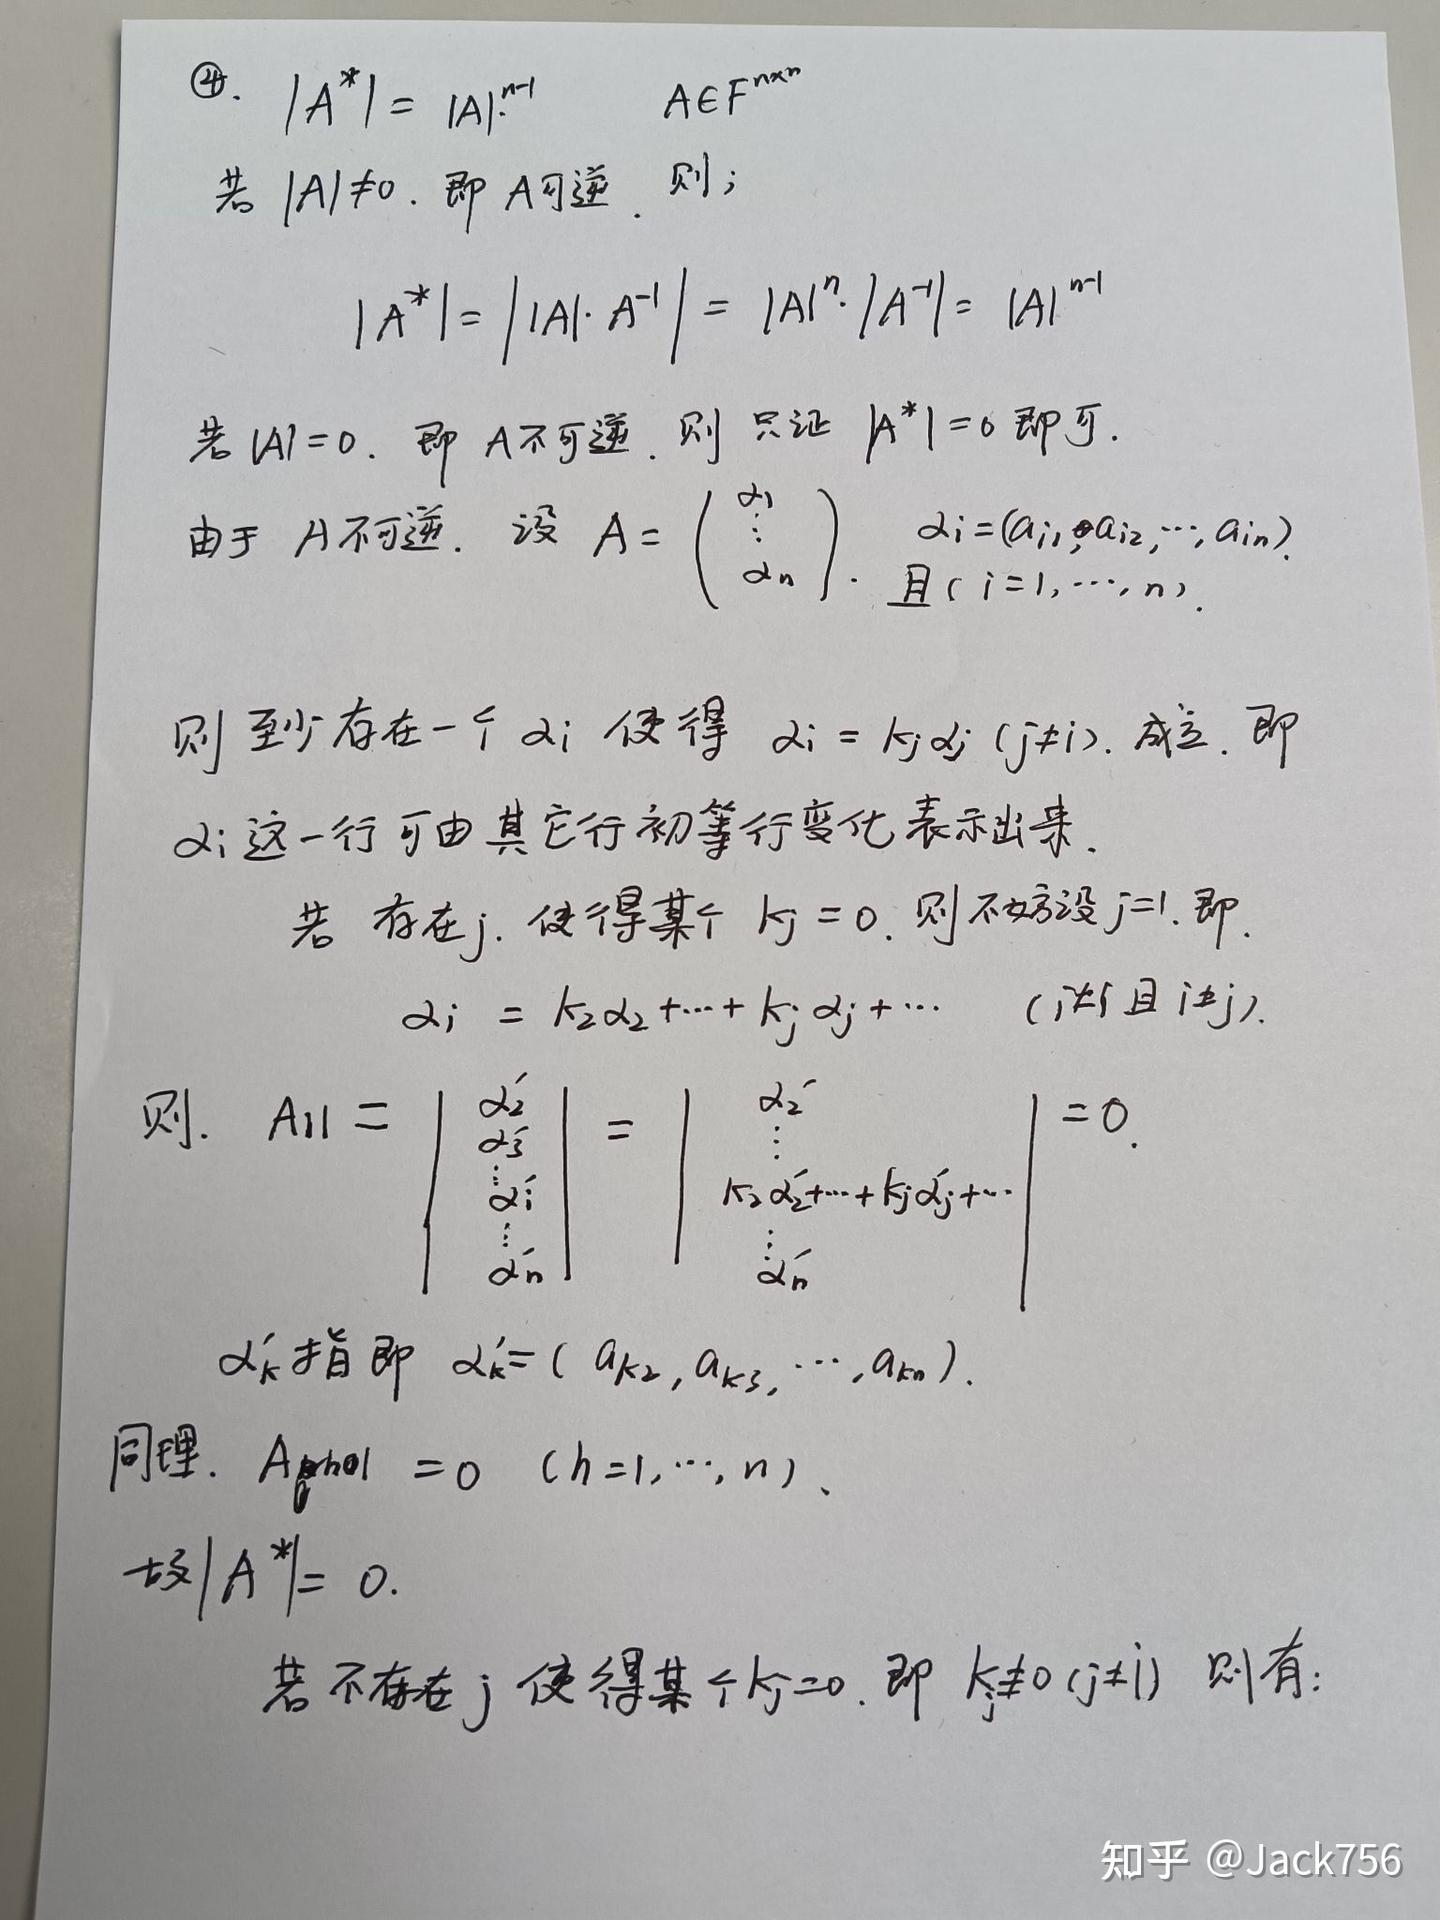 ④. |A*| = |A|^{n-1} A∈F^{n×n}
若 |A|≠0. 即 A可逆. 则;
|A*| = ||A|·A^{-1}| = |A|^n·|A^{-1}| = |A|^{n-1}
若|A|=0. 即 A不可逆. 则 只证 |A*|=0即可.
由于 A不可逆. 设 A = (α1 ⋮ αn). αi=(ai1, ai2, ⋯, ain).
且(i=1, ⋯, n).
则至少存在一个αi 使得 αi = kjαj (j≠i). 成立. 即
αi这一行可由其它行初等行变化表示出来.
若 存在j. 使得某个 kj = 0. 则不妨设j=1. 即.
αi = k2α2 +⋯+ kjαj + ⋯ (i≠1且i≠j).
则. A11 = |α2′ α3′ ⋮ αi′ ⋮ αn′| = |α2′ ⋮ k2α2′+⋯+kjαj′+⋯ ⋮ αn′| = 0.
αk′指即 αk′=(ak2, ak3, ⋯, akn).
同理. A = 0 (h=1, ⋯, n).
故|A*| = 0.
若不存在j使得某个kj=0. 即 kj≠0 (j≠i) 则有:
知乎 @Jack756